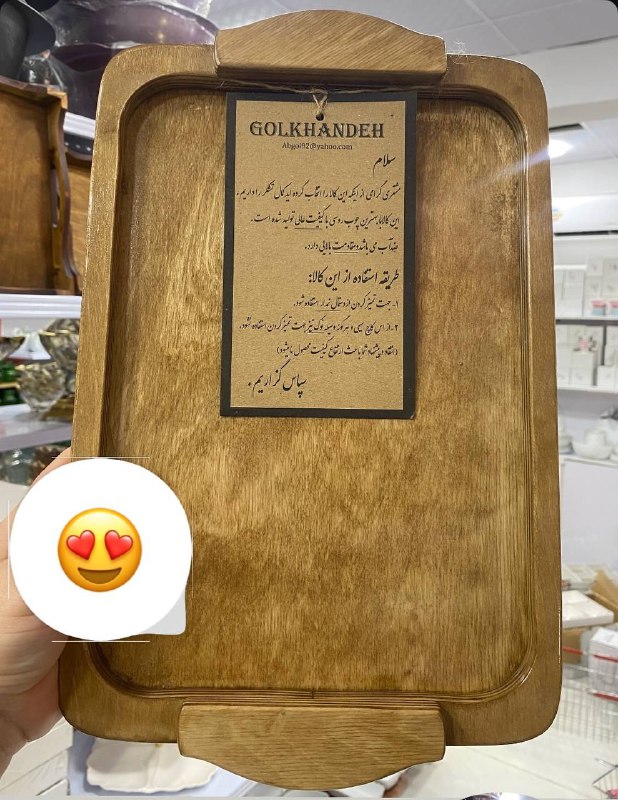 GOLKHANDEH
Abgol92@yahoo.com
سلام
مشتری گرامی از اینکه این کالا را انتخاب کرده اید کمال تشکر را داریم.
این کالا از بهترین چوب روسی با کیفیت عالی تولید شده است.
ضد آب می باشد و مقاومت بالایی دارد.
طریقه استفاده از این کالا:
۱- جهت تمیز کردن از دستمال نمدار استفاده شود.
۲- از اسکاچ سیمی و هرگونه وسیله نوک تیز جهت تمیز کردن استفاده نشود.
(انتقاد و پیشنهاد شما باعث ارتقاع کیفیت محصول ما میشود)
سپاس گزاریم.